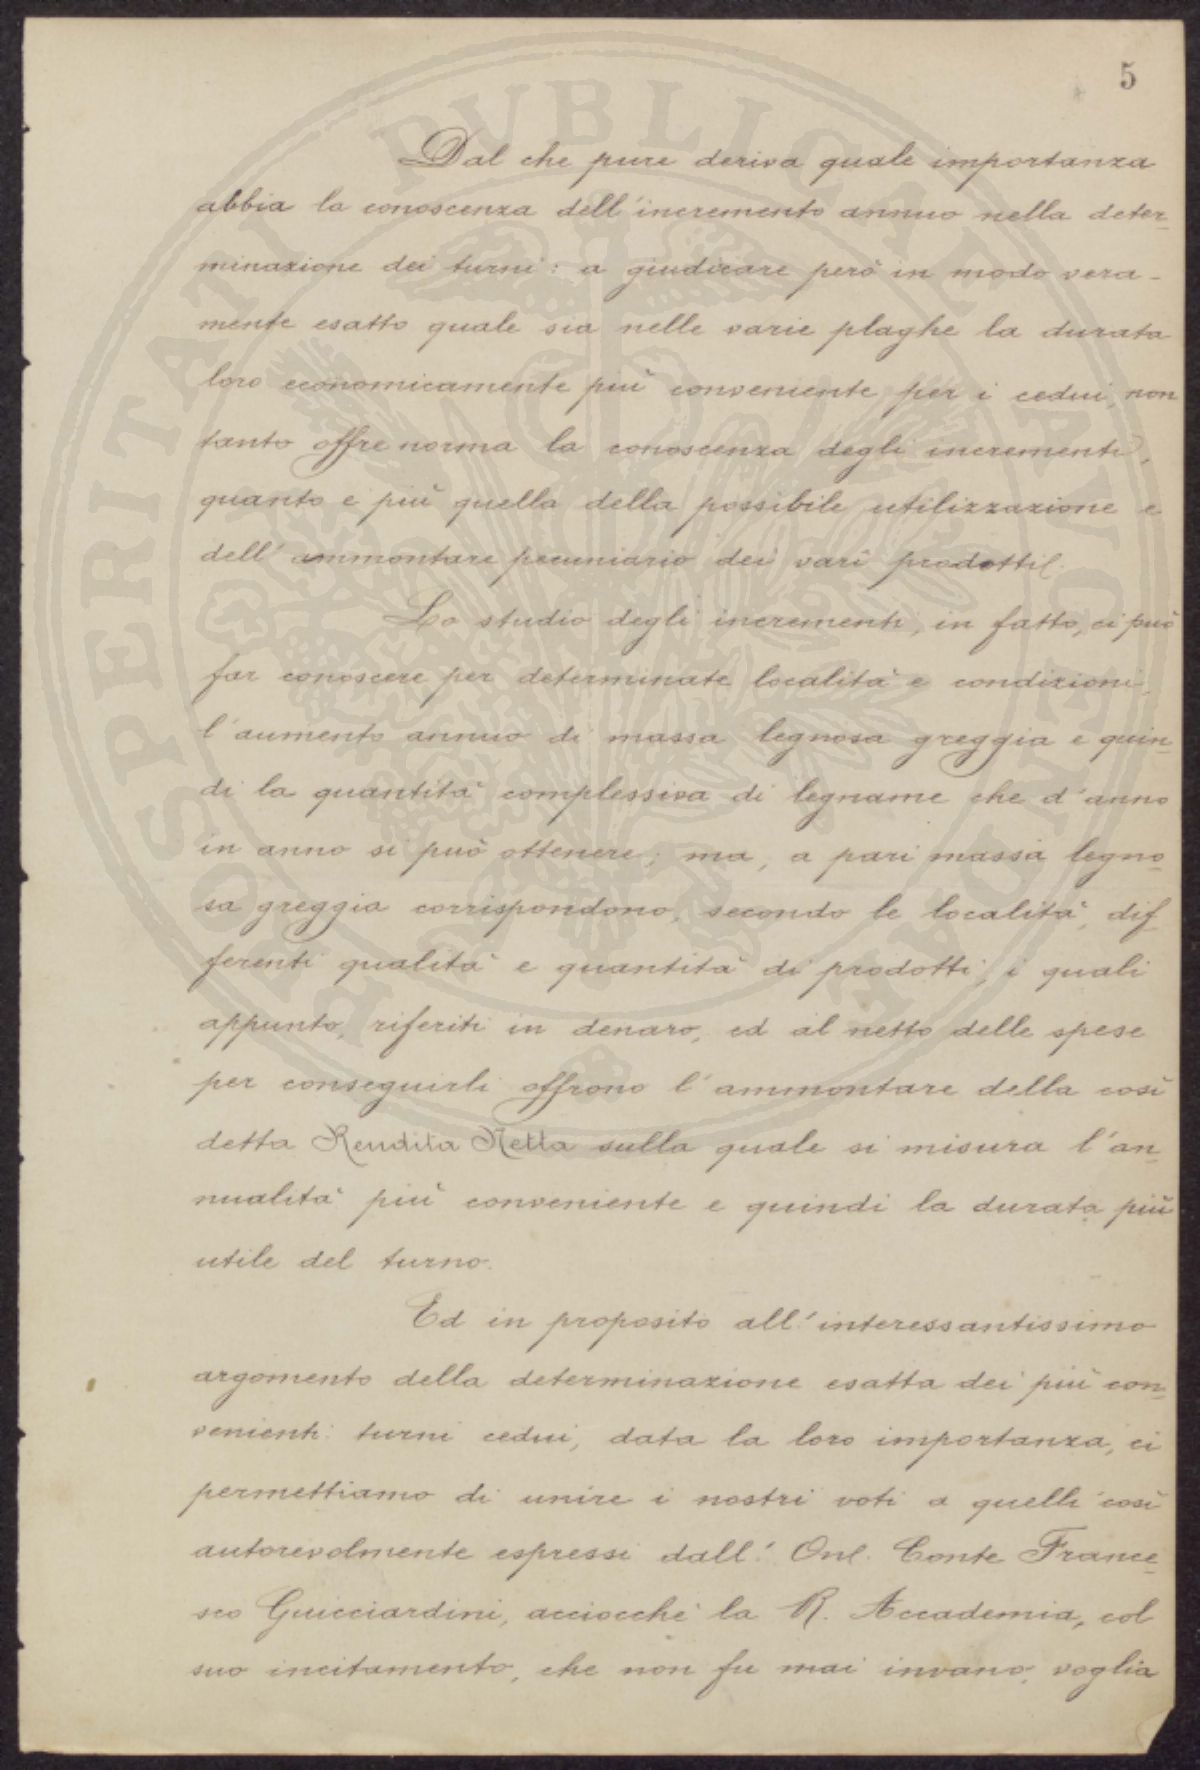 5
Dal che pure deriva quale importanza
abbia la conoscenza dell'incremento annuo nella deter-
minazione dei turni: a giudicare però in modo vera-
mente esatto quale sia nelle varie plaghe la durata
loro economicamente più conveniente per i cedui, non
tanto offre norma la conoscenza degli incrementi,
quanto e più quella della possibile utilizzazione e
dell'ammontare pecuniario dei vari prodotti.
Lo studio degli incrementi, in fatto, ci può
far conoscere per determinate località e condizioni,
l'aumento annuo di massa legnosa greggia e quin-
di la quantità complessiva di legname che d'anno
in anno si può ottenere; ma, a pari massa legno-
sa greggia corrispondono, secondo le località, dif-
ferenti qualità e quantità di prodotti, i quali
appunto, riferiti in denaro, ed al netto delle spese
per conseguirli offrono l'ammontare della così
detta Rendita Netta sulla quale si misura l'an-
nualità più conveniente e quindi la durata più
utile del turno.
Ed in proposito all'interessantissimo
argomento della determinazione esatta dei più con-
venienti turni cedui, data la loro importanza, ci
permettiamo di unire i nostri voti a quelli così
autorevolmente espressi dall' Onl. Conte France-
sco Guicciardini, acciocchè la R. Accademia, col
suo incitamento, che non fu mai invano, voglia
PROSPERITATI PUBLICAE AUGENDAE